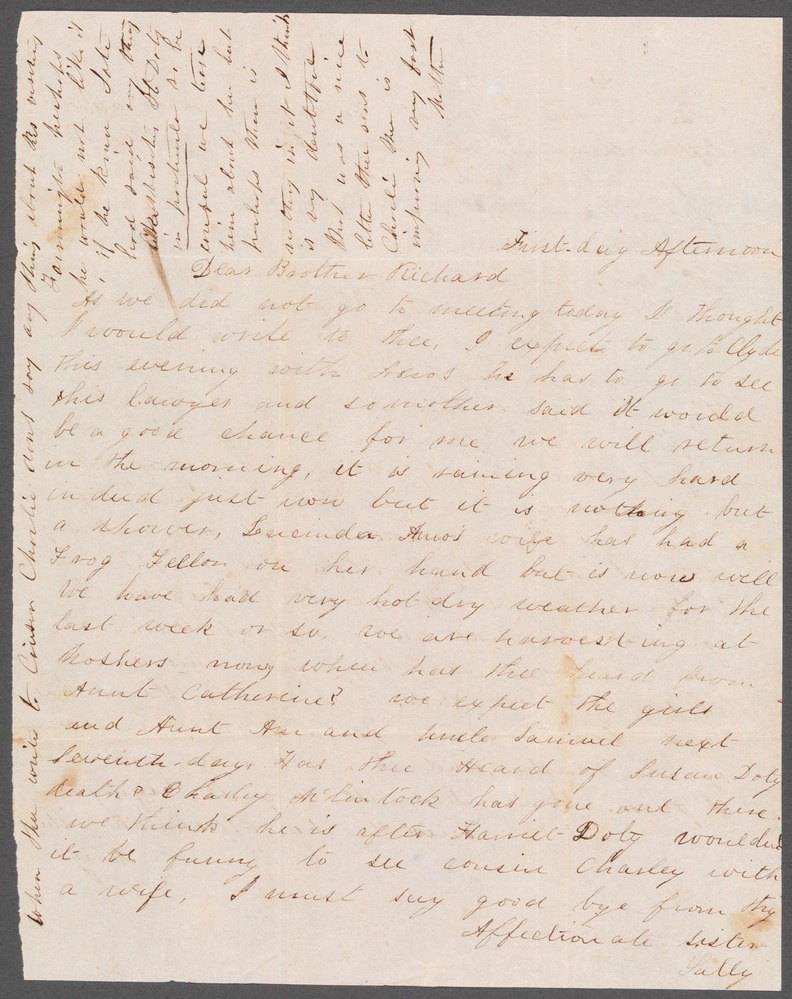 First-day Afternoon
Dear Brother Richard
As we did not go to meeting today I thought
I would write to thee, I expect to go to Clyde
this evening with Amos he has to go to see
this lawyer and so mother said it would
be a good chance for me we will return
in the morning, it is raining very hard
indeed just now but it is nothing but
a shower, Lucinda Amos wife has had a
Frog Fellon on her hand but is now well
We have had very hot dry weather for the
last week or so. we are harvesting at
Moshers now, when has thee heard from
Aunt Catherine? we expect the girls
and Aunt An and Uncle Samuel next
Seventh-day, Has thee Heard of Susan Doty
death? Charley McClintock has gone out there.
we think he is after Harriet Doty wouldnt
it be funny to see cousin Charley with
a wife, I must say good bye from thy
Affectionate sister
Sally
When thee write to Cousin Charlie dont say any thing about his visiting
Farmington perhaps
he would not like it
if he knew I ate
had said any thing
visiting H Doty
in particular so be
careful we tease
him about her but
perhaps there is
nothing in it I think
is very doubtful
that was a nice
letter thee sent to
Charlie thee is
improving very fast
Mother